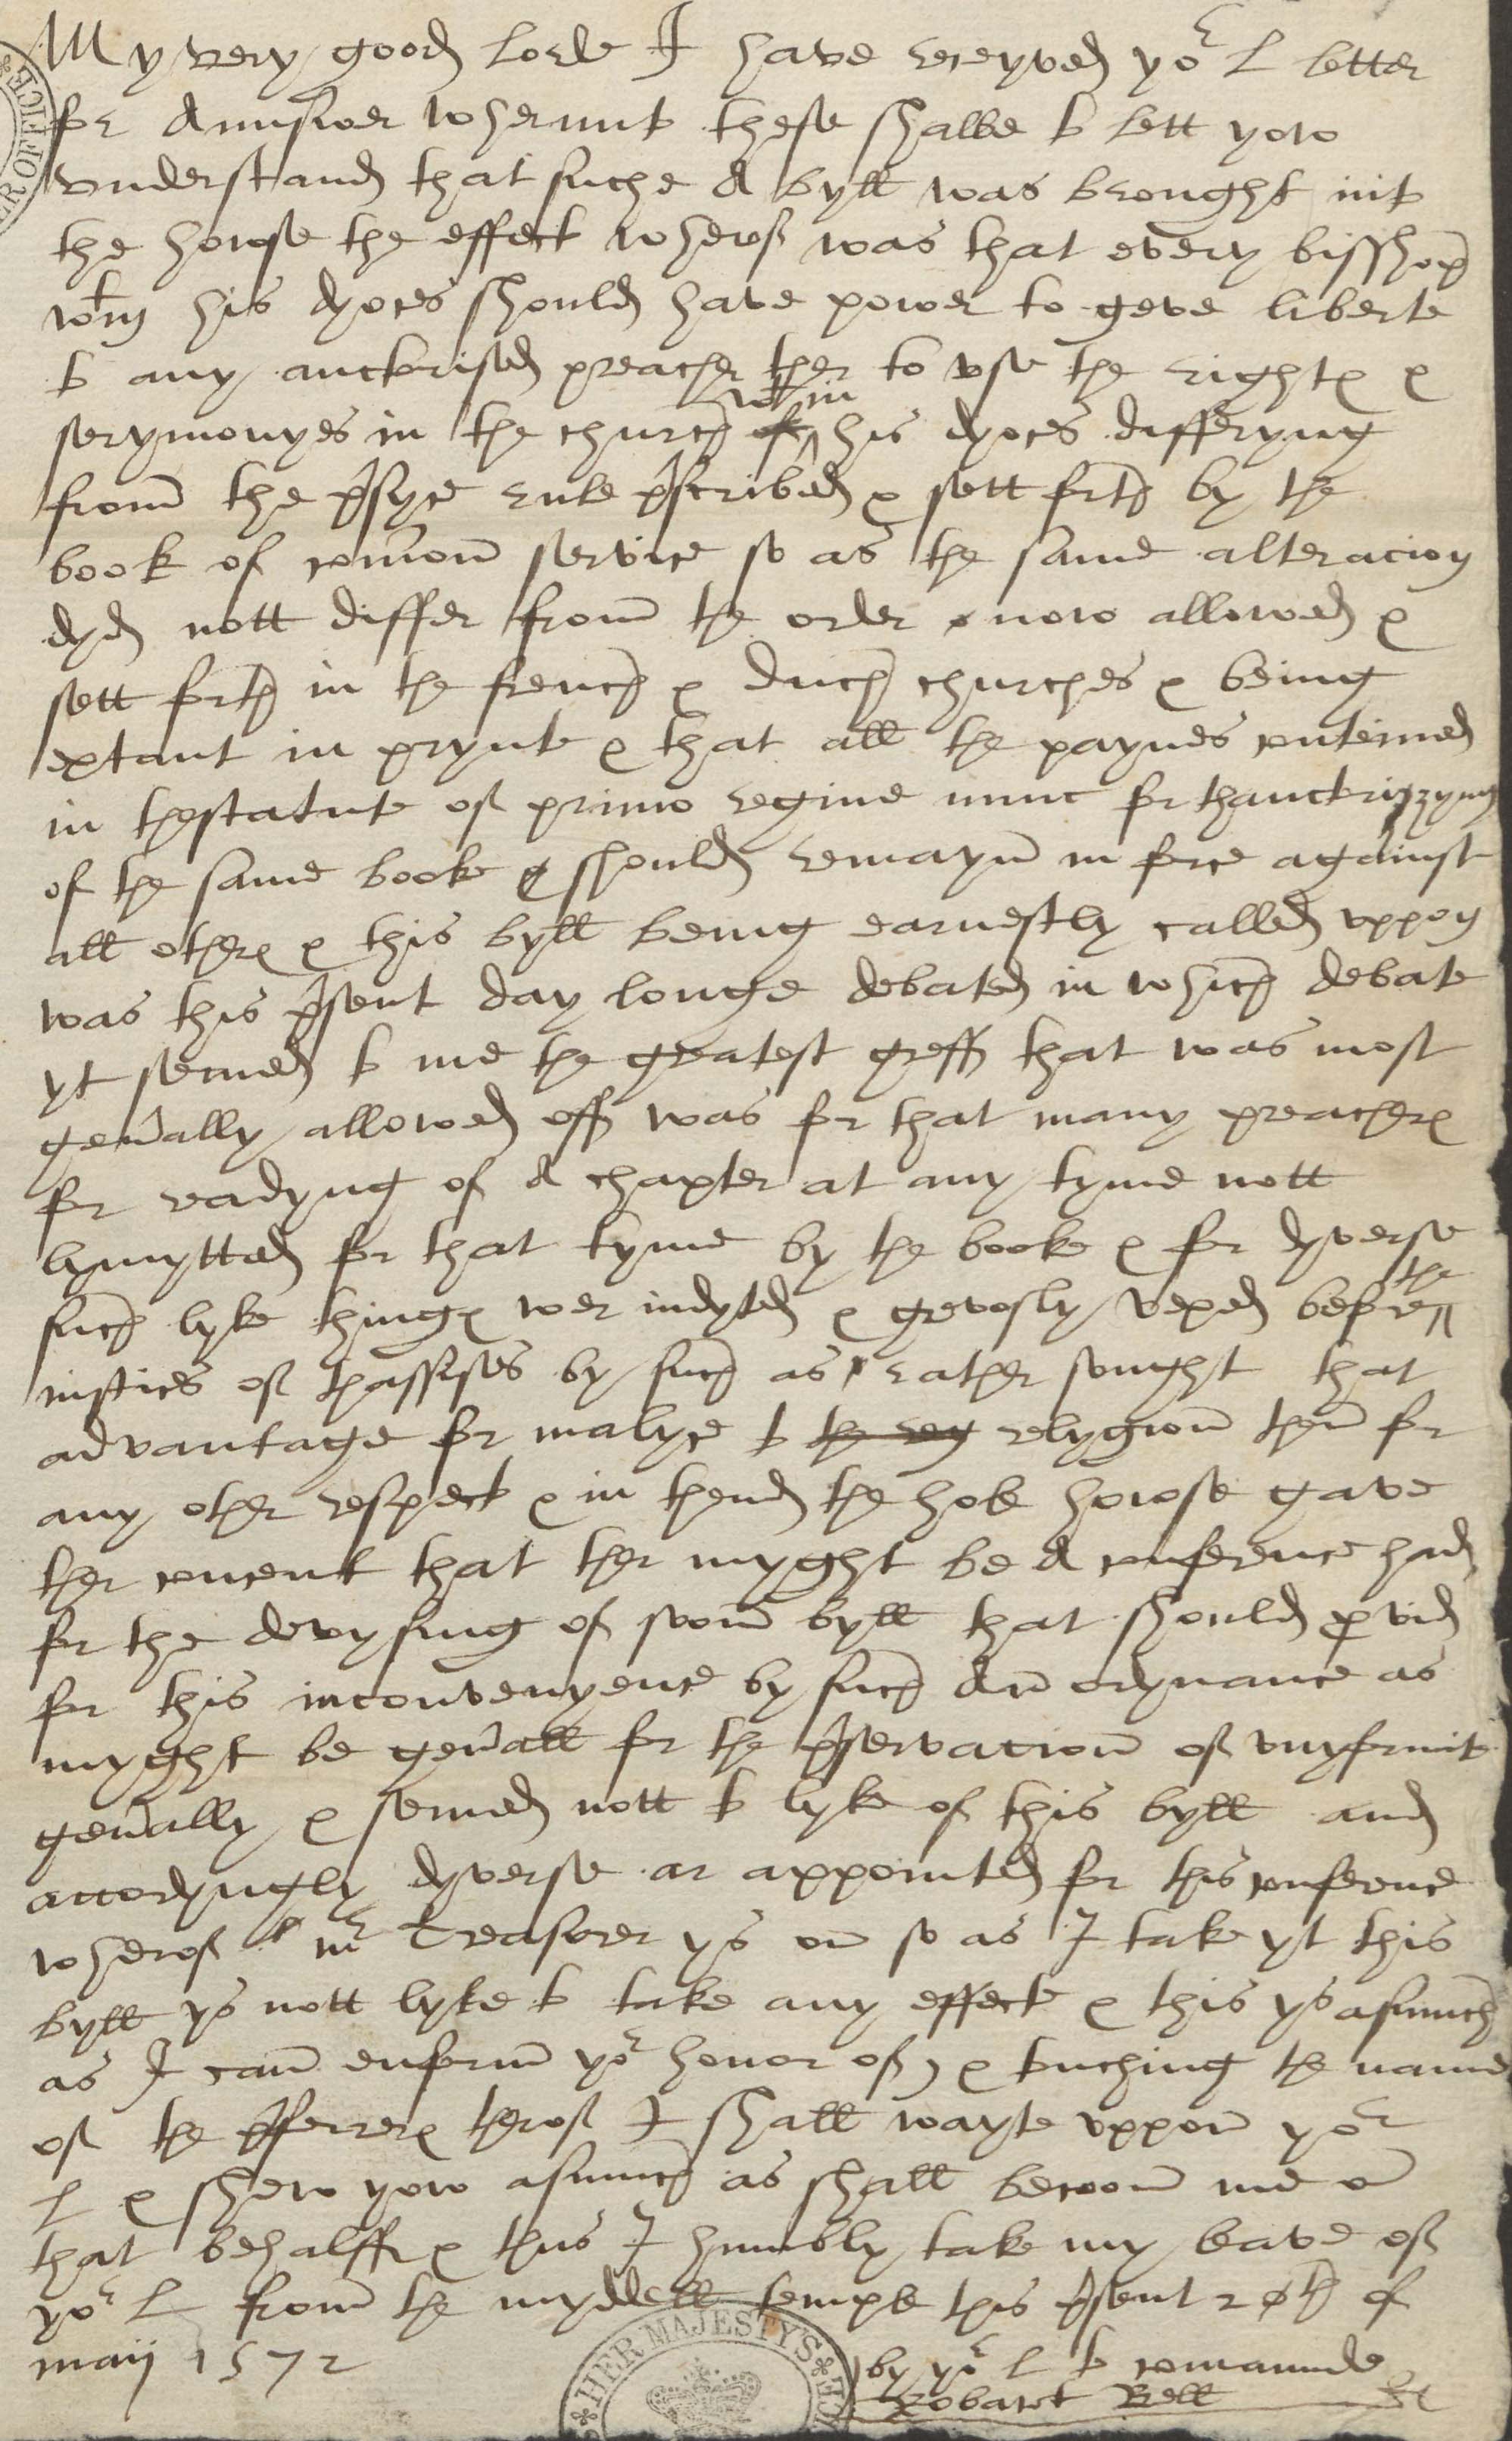 My very good Lorde I have receyved yor L letter
for Aunswer wherunto these shalbe to lett yow
understand that suche A byll was brought into
the howse the effect wherof was that every bisshop
wtin his dyoces should have power to geve liberte
to any auctorised preacher ther to use the rightes &
serymonyes in the church of wtin his dyoces differyng
from the prsyce rule prscribed & sett forth by the
book of comon service so as the same alteracion
dyd nott differ from the order now allowed &
sett forth in the french & duch churches & being
extant in prynte & that all the paynes conteined
in thestatute of primo regine nunc for thauctorizzyng
of the same booke should remayn in force against
all others & this byll being earnestly called uppon
was this prsent day longe debated in which debate
yt semed to me the greatest greff that was most
generally allowed off was for that many preachers
for readyng of A chapter at any tyme nott
lymytted for that tyme by the booke & for dyverse
such lyke thinges wer indyted & grevosly vexed before the
iustices of thassises by such as rather sought that
advantage for malyce to the reg relygion then for
any other respect & in thend the hole howse gave
ther concent that ther myght be A conference had
for the devysing of soom byll that should provid
for this inconvenyence by such An ordynance as
myght be generall for the prservacion of unyformite
generally & semed nott to lyke of this byll and
accordyngly dyverse ar appointed for this conference
wherof mr Treasorer ys on so as I take yt this
byll ys nott lyke to take any effecte & this ys asmuch
as I can enform yor honor of, & touching the name
of the prferrers therof I shall wayte uppon yor
L & shew yow asmuch as shall becoom me on
that behalff & thus I humbly take my leave of
yor L from the myddell temple this prsent 20th of
maij 1572
by yor L to comaunde
Robart Bell
HER MAJESTY'S
ER OFFICE